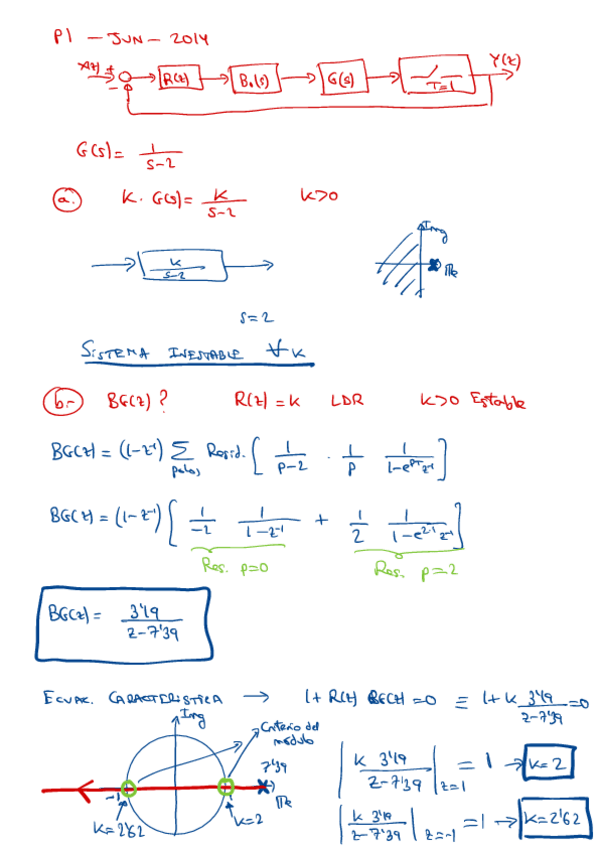 P1 - JUN - 2014
X(z) + R(z) B₀(s) G(s) T=1 Y(z)
-
G(s) = 1/(s-2)
a. K · G(s) = K/(s-2) K>0
K/(s-2) Img Re
s=2
SISTEMA INESTABLE ∀ K
b.- BG(z) ? R(z) = K LDR K>0 Estable
BG(z) = (1-z⁻¹) Σ polos Resid. [ 1/(p-2) · 1/p 1/(1-e^{pT} z⁻¹) ]
BG(z) = (1-z⁻¹) [ 1/-2 1/(1-z⁻¹) + 1/2 1/(1-e^{2·1} z⁻¹) ]
Res. p=0 Res. p=2
BG(z) = 3'19/(z-7'39)
ECUAC. CARACTERISTICA → 1+R(z) BG(z) = 0 ≡ 1+K 3'19/(z-7'39) = 0
Img Criterio del módulo
7'39
-1 1 Re
K=2'62 K=2
| K 3'19/(z-7'39) | z=1 = 1 → K=2
| K 3'19/(z-7'39) | z=-1 = 1 → K=2'62